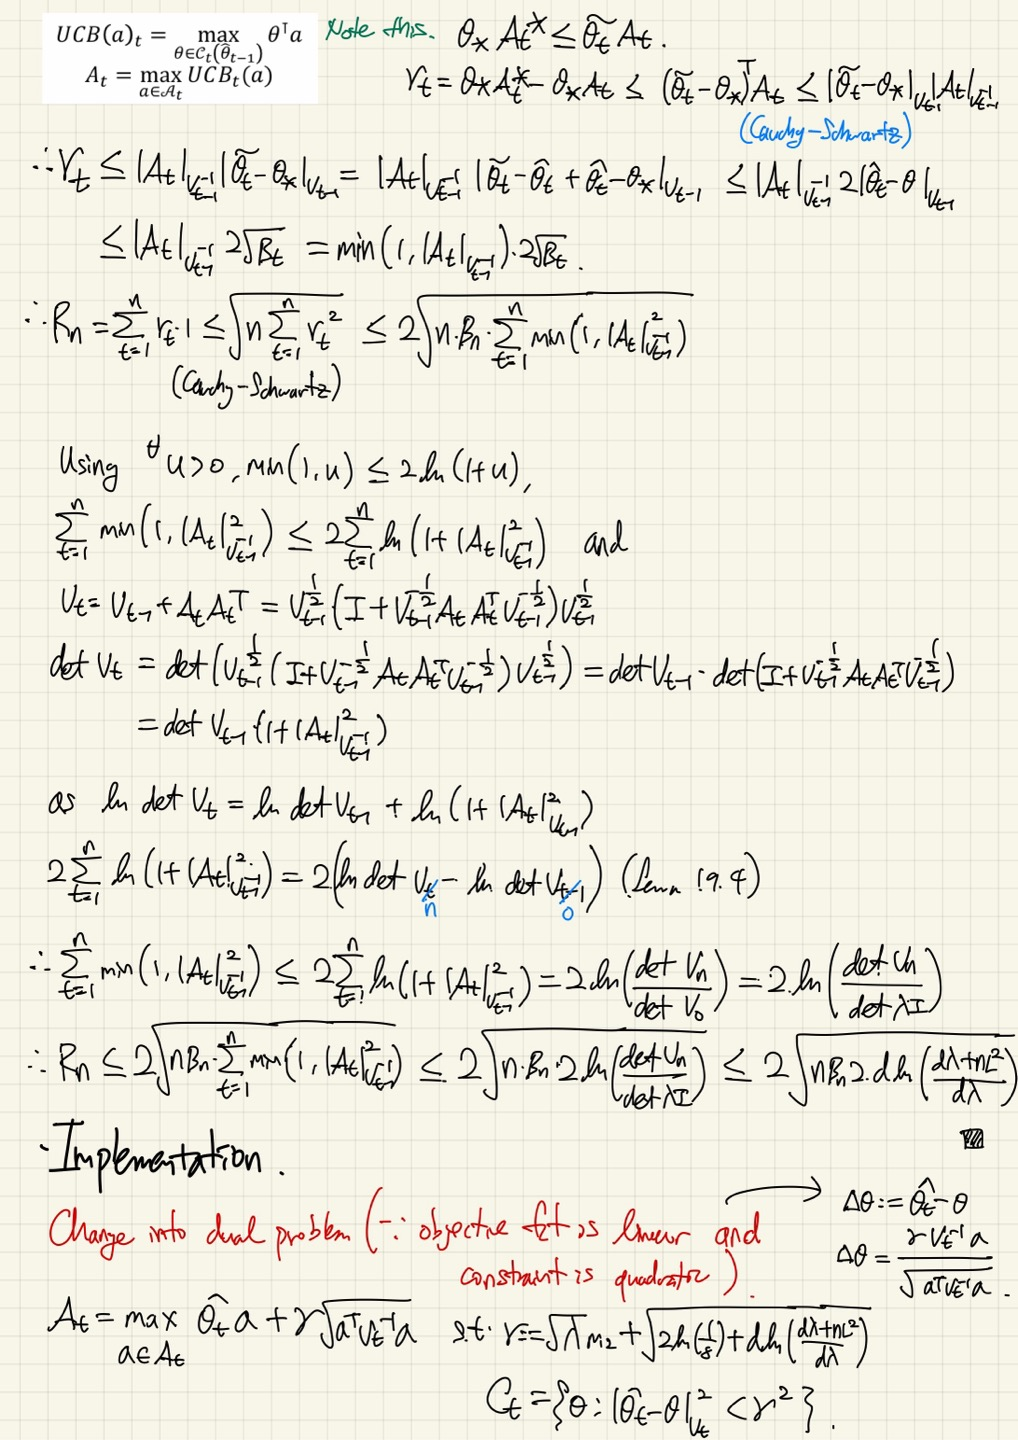 UCB(a)_t = max_{θ∈C_t(θ̂_{t-1})} θ^⊤ a
A_t = max_{a∈A_t} UCB_t(a)
Note this. θ_* A_t^* ≤ θ̃_t A_t.
r_t = θ_* A_t^* - θ_* A_t ≤ (θ̃_t - θ_*)^T A_t ≤ |θ̃_t - θ_*|_{V_{t-1}} |A_t|_{V_{t-1}^{-1}}
(Cauchy-Schwartz)
∴ r_t ≤ |A_t|_{V_{t-1}^{-1}} |θ̃_t - θ_*|_{V_{t-1}} = |A_t|_{V_{t-1}^{-1}} |θ̃_t - θ̂_t + θ̂_t - θ_*|_{V_{t-1}} ≤ |A_t|_{V_{t-1}^{-1}} 2|θ̂_t - θ|_{V_{t-1}}
≤ |A_t|_{V_{t-1}^{-1}} 2√β_t = min(1, |A_t|_{V_{t-1}^{-1}}) · 2√β_t.
∴ R_n = Σ_{t=1}^n r_t·1 ≤ √(n Σ_{t=1}^n r_t^2) ≤ 2√(n·β_n·Σ_{t=1}^n min(1, |A_t|^2_{V_{t-1}^{-1}}))
(Cauchy-Schwartz)
Using ∀u>0, min(1, u) ≤ 2 ln(1+u),
Σ_{t=1}^n min(1, |A_t|^2_{V_{t-1}^{-1}}) ≤ 2Σ_{t=1}^n ln(1+|A_t|^2_{V_{t-1}^{-1}}) and
V_t = V_{t-1} + A_t A_t^T = V_{t-1}^{1/2}(I + V_{t-1}^{-1/2} A_t A_t^T V_{t-1}^{-1/2})V_{t-1}^{1/2}
det V_t = det(V_{t-1}^{1/2}(I + V_{t-1}^{-1/2} A_t A_t^T V_{t-1}^{-1/2})V_{t-1}^{1/2}) = det V_{t-1} · det(I + V_{t-1}^{-1/2} A_t A_t^T V_{t-1}^{-1/2})
= det V_{t-1} (1+|A_t|^2_{V_{t-1}^{-1}})
as ln det V_t = ln det V_{t-1} + ln(1+|A_t|^2_{V_{t-1}})
2Σ_{t=1}^n ln(1+|A_t|^2_{V_{t-1}^{-1}}) = 2(ln det V_n - ln det V_0) (Lemma 19.4)
∴ Σ_{t=1}^n min(1, |A_t|^2_{V_{t-1}^{-1}}) ≤ 2Σ_{t=1}^n ln(1+|A_t|^2_{V_{t-1}^{-1}}) = 2 ln(det V_n / det V_0) = 2·ln(det V_n / det λI)
∴ R_n ≤ 2√(nβ_n·Σ_{t=1}^n min(1, |A_t|^2_{V_{t-1}^{-1}})) ≤ 2√(n·β_n·2 ln(det V_n / det λI)) ≤ 2√(nβ_n 2·d ln((dλ+nL^2)/dλ))
· Implementation.
Change into dual problem (∵ objective fct is linear and
constraint is quadratic).
→ Δθ := θ̂_t - θ
Δθ = γV_t^{-1}a / √(a^T V_t^{-1} a).
A_t = max_{a∈A_t} θ̂_t a + γ√(a^T V_t^{-1} a) s.t. γ := √λ m_2 + √(2ln(1/δ) + d ln((dλ+nL^2)/dλ))
C_t = {θ : |θ̂_t - θ|^2_{V_t} < γ^2}.